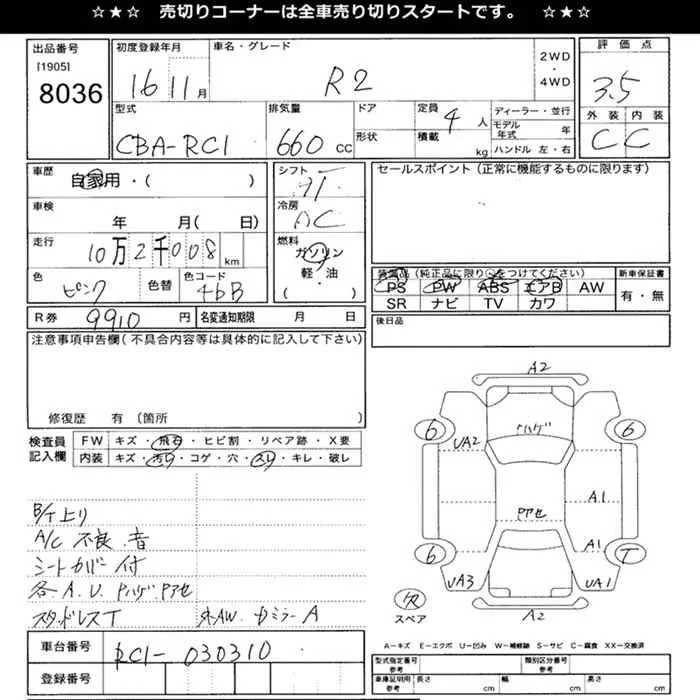 ☆★☆ 売切りコーナーは全車売り切りスタートです。 ☆★☆
出品番号
[1905]
8036
初度登録年月
16 11月
車名・グレード
R2
2WD
・
4WD
評価点
3.5
外装 内装
C C
型式
CBA-RC1
排気量
660 CC
ドア
形状
定員
4 人
積載
kg
ディーラー・並行
モデル年式 年
ハンドル 左・右
車歴
自家用・( )
車検
年 月( 日)
走行
10万2千008 km
色
ピンク
色替
色コード
46B
シフト
AT
冷房
AC
燃料
ガソリン
軽・油
( )
セールスポイント(正常に機能するものに限ります)
装備品(純正品に限り○をつけてください)
PS PW ABS エアB AW
SR ナビ TV カワ
新車保証書
有・無
後日品
R券 9910 円
名変通知期限 月 日
注意事項申告欄(不具合内容等は具体的に記入して下さい)
修復歴 有 (箇所 )
検査員
記入欄
FW キズ・飛石・ヒビ割・リペア跡・X要
内装 キズ・汚レ・コゲ・穴・スレ・キレ・破レ
B/T上り
A/C 不良 音
シートカバー付
各A.U. PハゲPアセ
スタッドレスT
外AW. Dミラー A
車台番号 RC1-030310
登録番号
A2
6
6
UA2
Pハゲ
A1
Pアセ
A1
6
T
UA3
UA1
A2
欠
スペア
A−キズ E−エクボ U−凹み W−補修跡 S−サビ C−腐食 XX−交換済
型式指定番号
参考
類別区分番号
参考
車庫証明用
参考
長さ cm
幅 cm
高さ cm